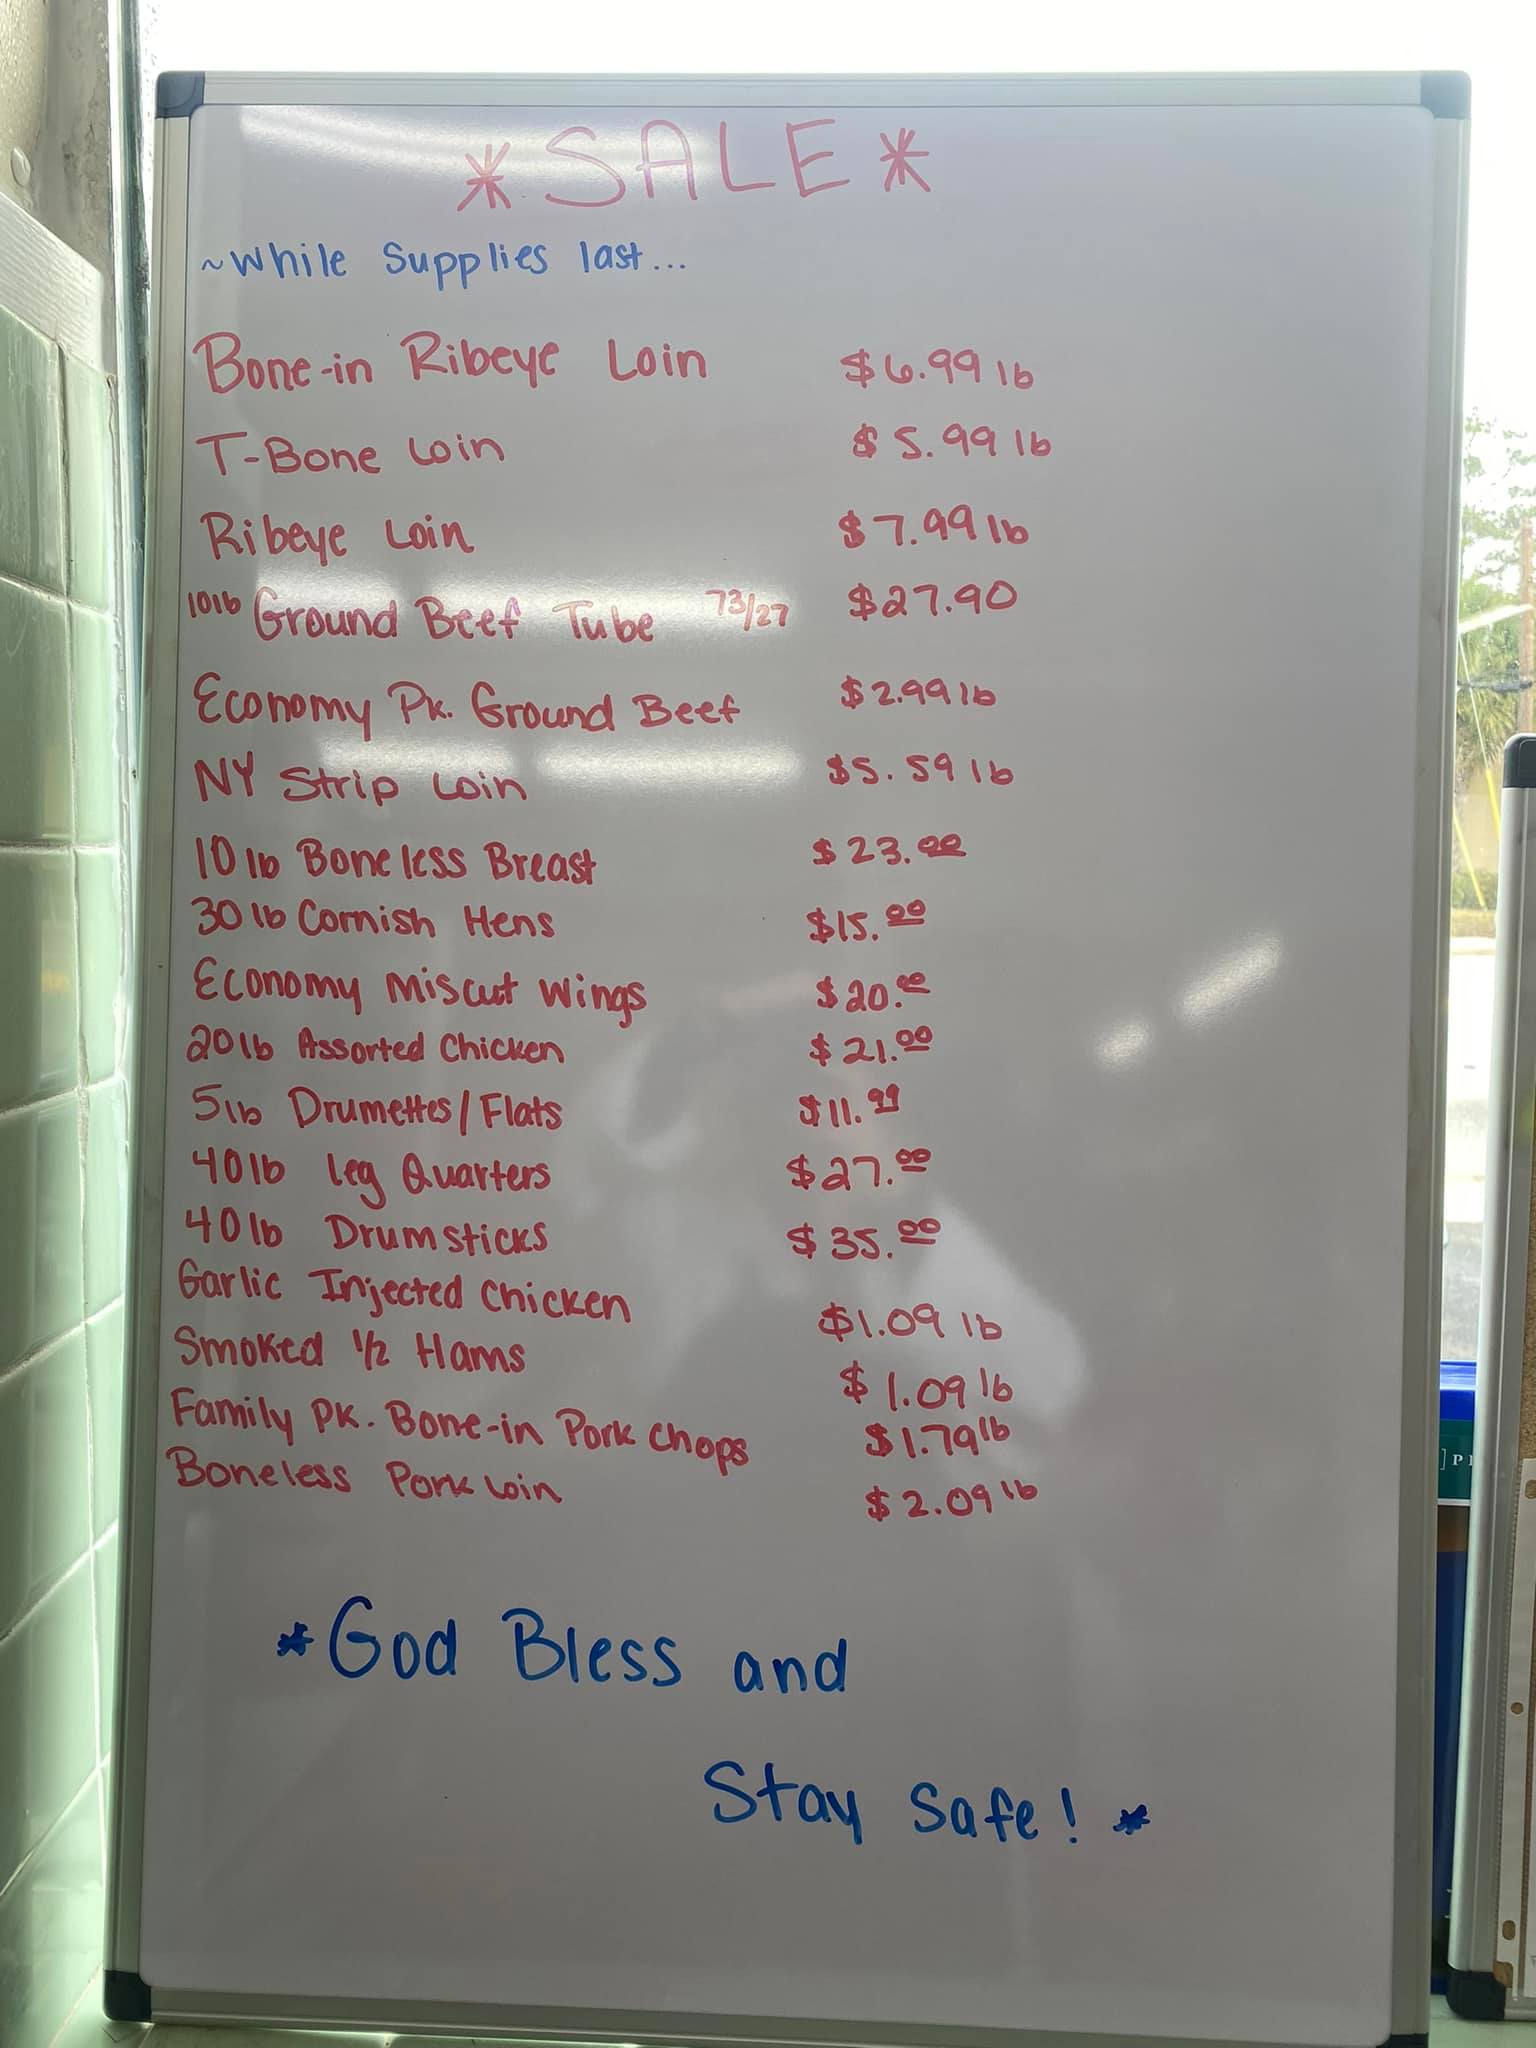 *SALE*
~While Supplies last...
Bone-in Ribeye Loin $6.99 lb
T-Bone Loin $5.99 lb
Ribeye Loin $7.99 lb
10lb Ground Beef Tube 73/27 $27.90
Economy Pk. Ground Beef $2.99 lb
NY Strip Loin $5.59 lb
10 lb Boneless Breast $23.00
30 lb Cornish Hens $15.00
Economy Miscut Wings $20.00
20 lb Assorted Chicken $21.00
5 lb Drumettes/Flats $11.99
40 lb Leg Quarters $27.00
40 lb Drumsticks $35.00
Garlic Injected Chicken $1.09 lb
Smoked 1/2 Hams $1.09 lb
Family PK. Bone-in Pork Chops $1.79 lb
Boneless Pork Loin $2.09 lb
*God Bless and
Stay Safe! *